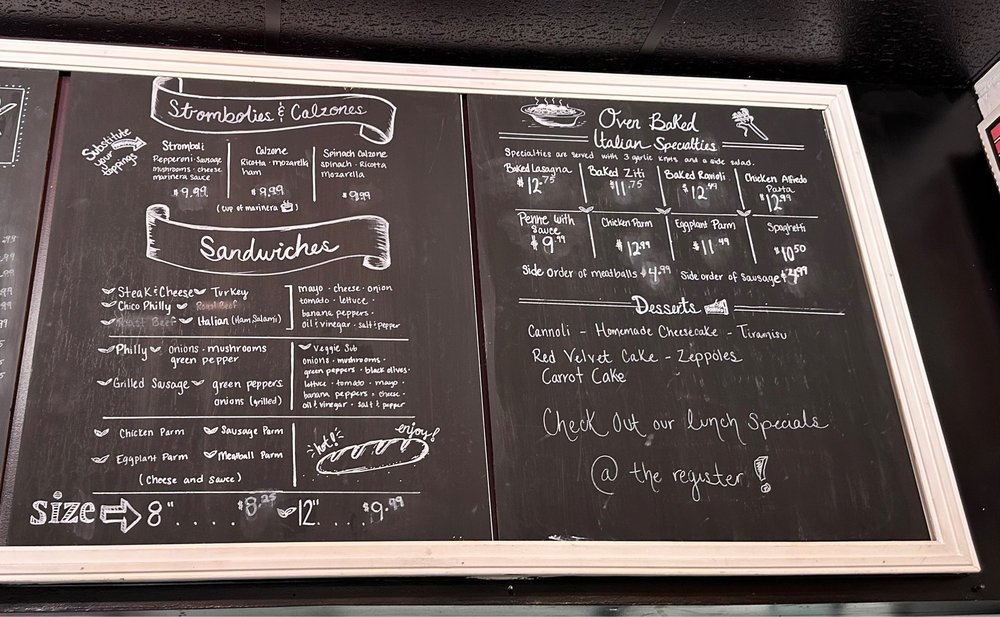 Strombolies & Calzones
Substitute
your
toppings
Stromboli
Pepperoni · Sausage
mushrooms · cheese
marinera sauce
$9.99
Calzone
Ricotta · mozarella
ham
$9.99
Spinach Calzone
spinach · Ricotta
Mozarella
$9.99
(cup of marinera)
Sandwiches
Steak & Cheese Turkey
Chico Philly Roast Beef
Roast Beef Italian (Ham, Salami)
mayo · cheese · onion
tomato · lettuce ·
banana peppers ·
oil & vinegar · salt & pepper
Philly onions · mushrooms
green pepper
Grilled Sausage green peppers
onions (grilled)
Veggie Sub
onions · mushrooms ·
green peppers · black olives ·
lettuce · tomato · mayo ·
banana peppers · cheese ·
oil & vinegar · salt & pepper
Chicken Parm Sausage Parm
Eggplant Parm Meatball Parm
(cheese and sauce)
hot! enjoy!
size 8" . . . . . $8.25 12" . . . . $9.99
Oven Baked
Italian Specialties
Specialties are served with 3 garlic knots and a side salad.
Baked Lasagna
$12.75
Baked Ziti
$11.75
Baked Ravioli
$12.49
Chicken Alfredo
Pasta
$12.99
Penne with
sauce
$9.99
Chicken Parm
$12.99
Eggplant Parm
$11.49
Spaghetti
$10.50
Side order of meatballs $4.99 Side order of Sausage $3.99
Desserts
Cannoli - Homemade Cheesecake - Tiramisu
Red Velvet Cake - Zeppoles
Carrot Cake
Check Out our lunch specials
@ the register!